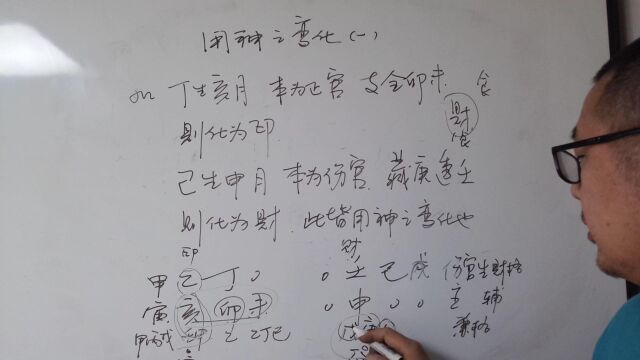 用神之变化(一)
如 丁生亥月 本为正官 支全卯未 食
则化为印 财
食
己生申月 本为伤官 藏庚透壬
则化为财 此皆用神之变化也
印 财
甲 乙 丁 。 。 壬 己 戊 伤官生财格
寅 亥 卯 未 。 申 。 。 主 辅
甲丙戊 甲 乙 乙丁己 戊 庚 兼格